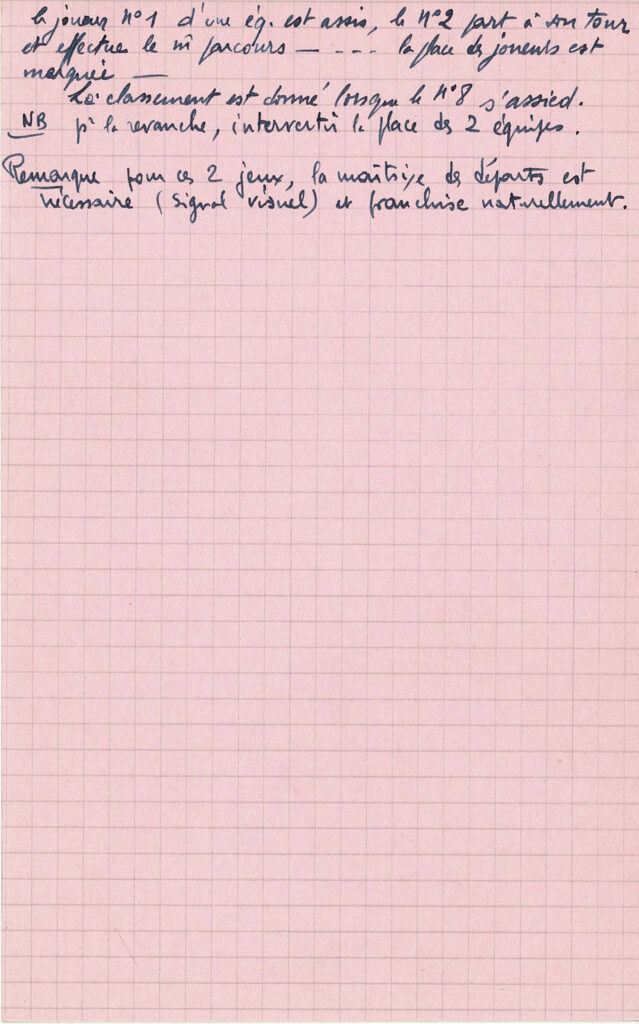 le joueur n°1 d'une éq. est assis, le n°2 part à son tour
et effectue le m̂ parcours — - - - la place des joueurs est
marquée —
Le classement est donné lorsque le n°8 s'assied.
NB pr la revanche, intervertir la place des 2 équipes.
Remarque pour ces 2 jeux, la maîtrise des départs est
nécessaire (signal visuel) et franchise naturellement.